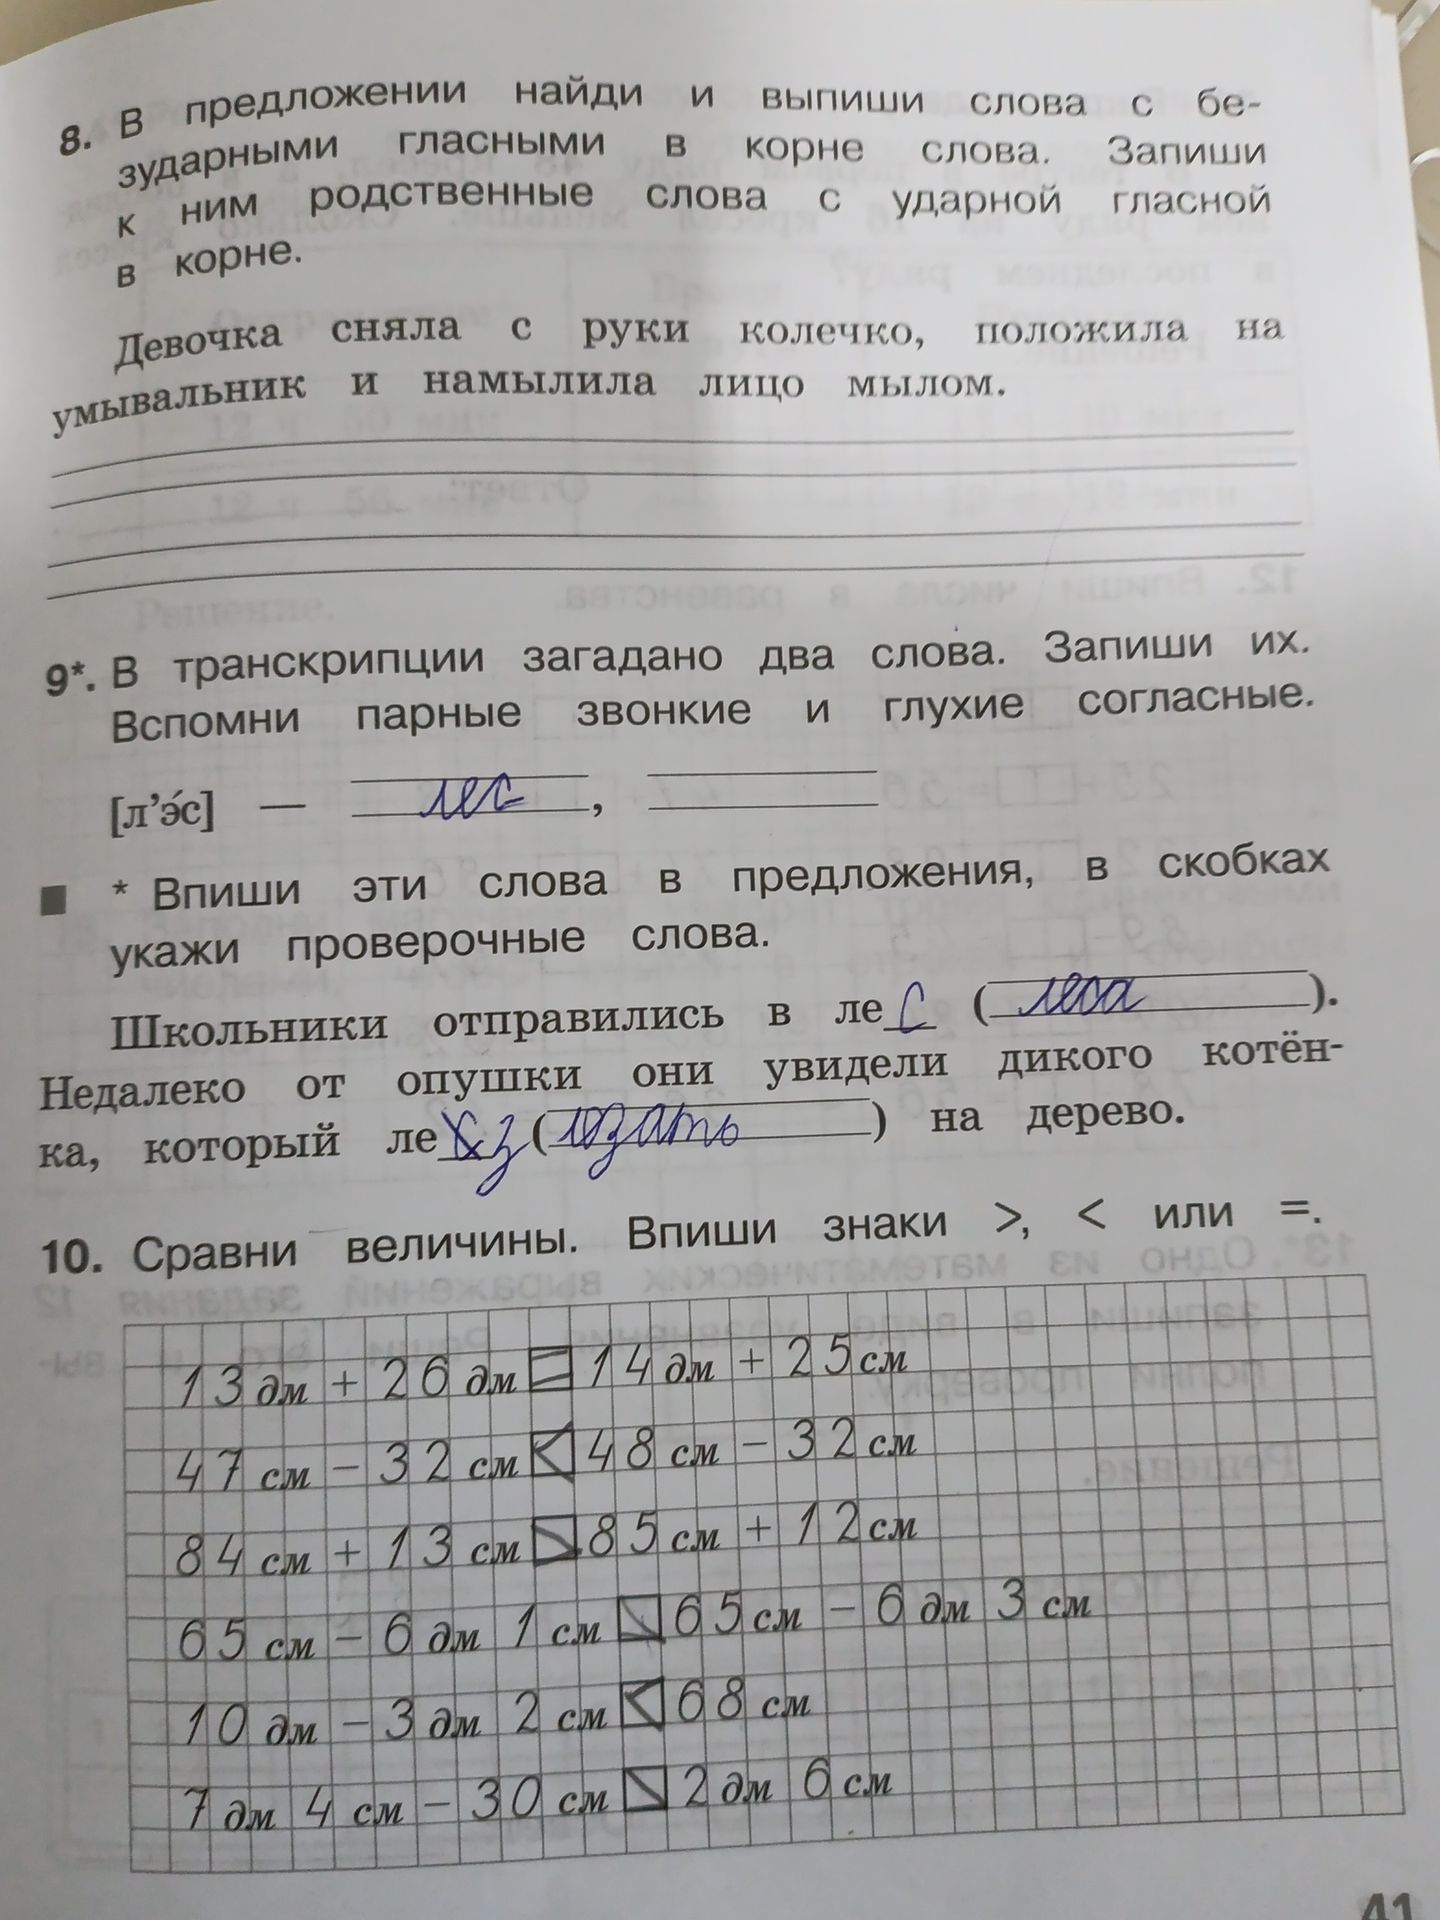 8. В предложении найди и выпиши слова с бе-
зударными гласными в корне слова. Запиши
к ним родственные слова с ударной гласной
в корне.
Девочка сняла с руки колечко, положила на
умывальник и намылила лицо мылом.
9*. В транскрипции загадано два слова. Запиши их.
Вспомни парные звонкие и глухие согласные.
[л’э́с] — лес,
* Впиши эти слова в предложения, в скобках
укажи проверочные слова.
Школьники отправились в лес (леса).
Недалеко от опушки они увидели дикого котён-
ка, который лез (лезать) на дерево.
10. Сравни величины. Впиши знаки >, < или =.
13 дм + 26 дм = 14 дм + 25 см
47 см − 32 см < 48 см − 32 см
84 см + 13 см > 85 см + 12 см
65 см − 6 дм 1 см > 65 см − 6 дм 3 см
10 дм − 3 дм 2 см < 68 см
7 дм 4 см − 30 см > 2 дм 6 см
41